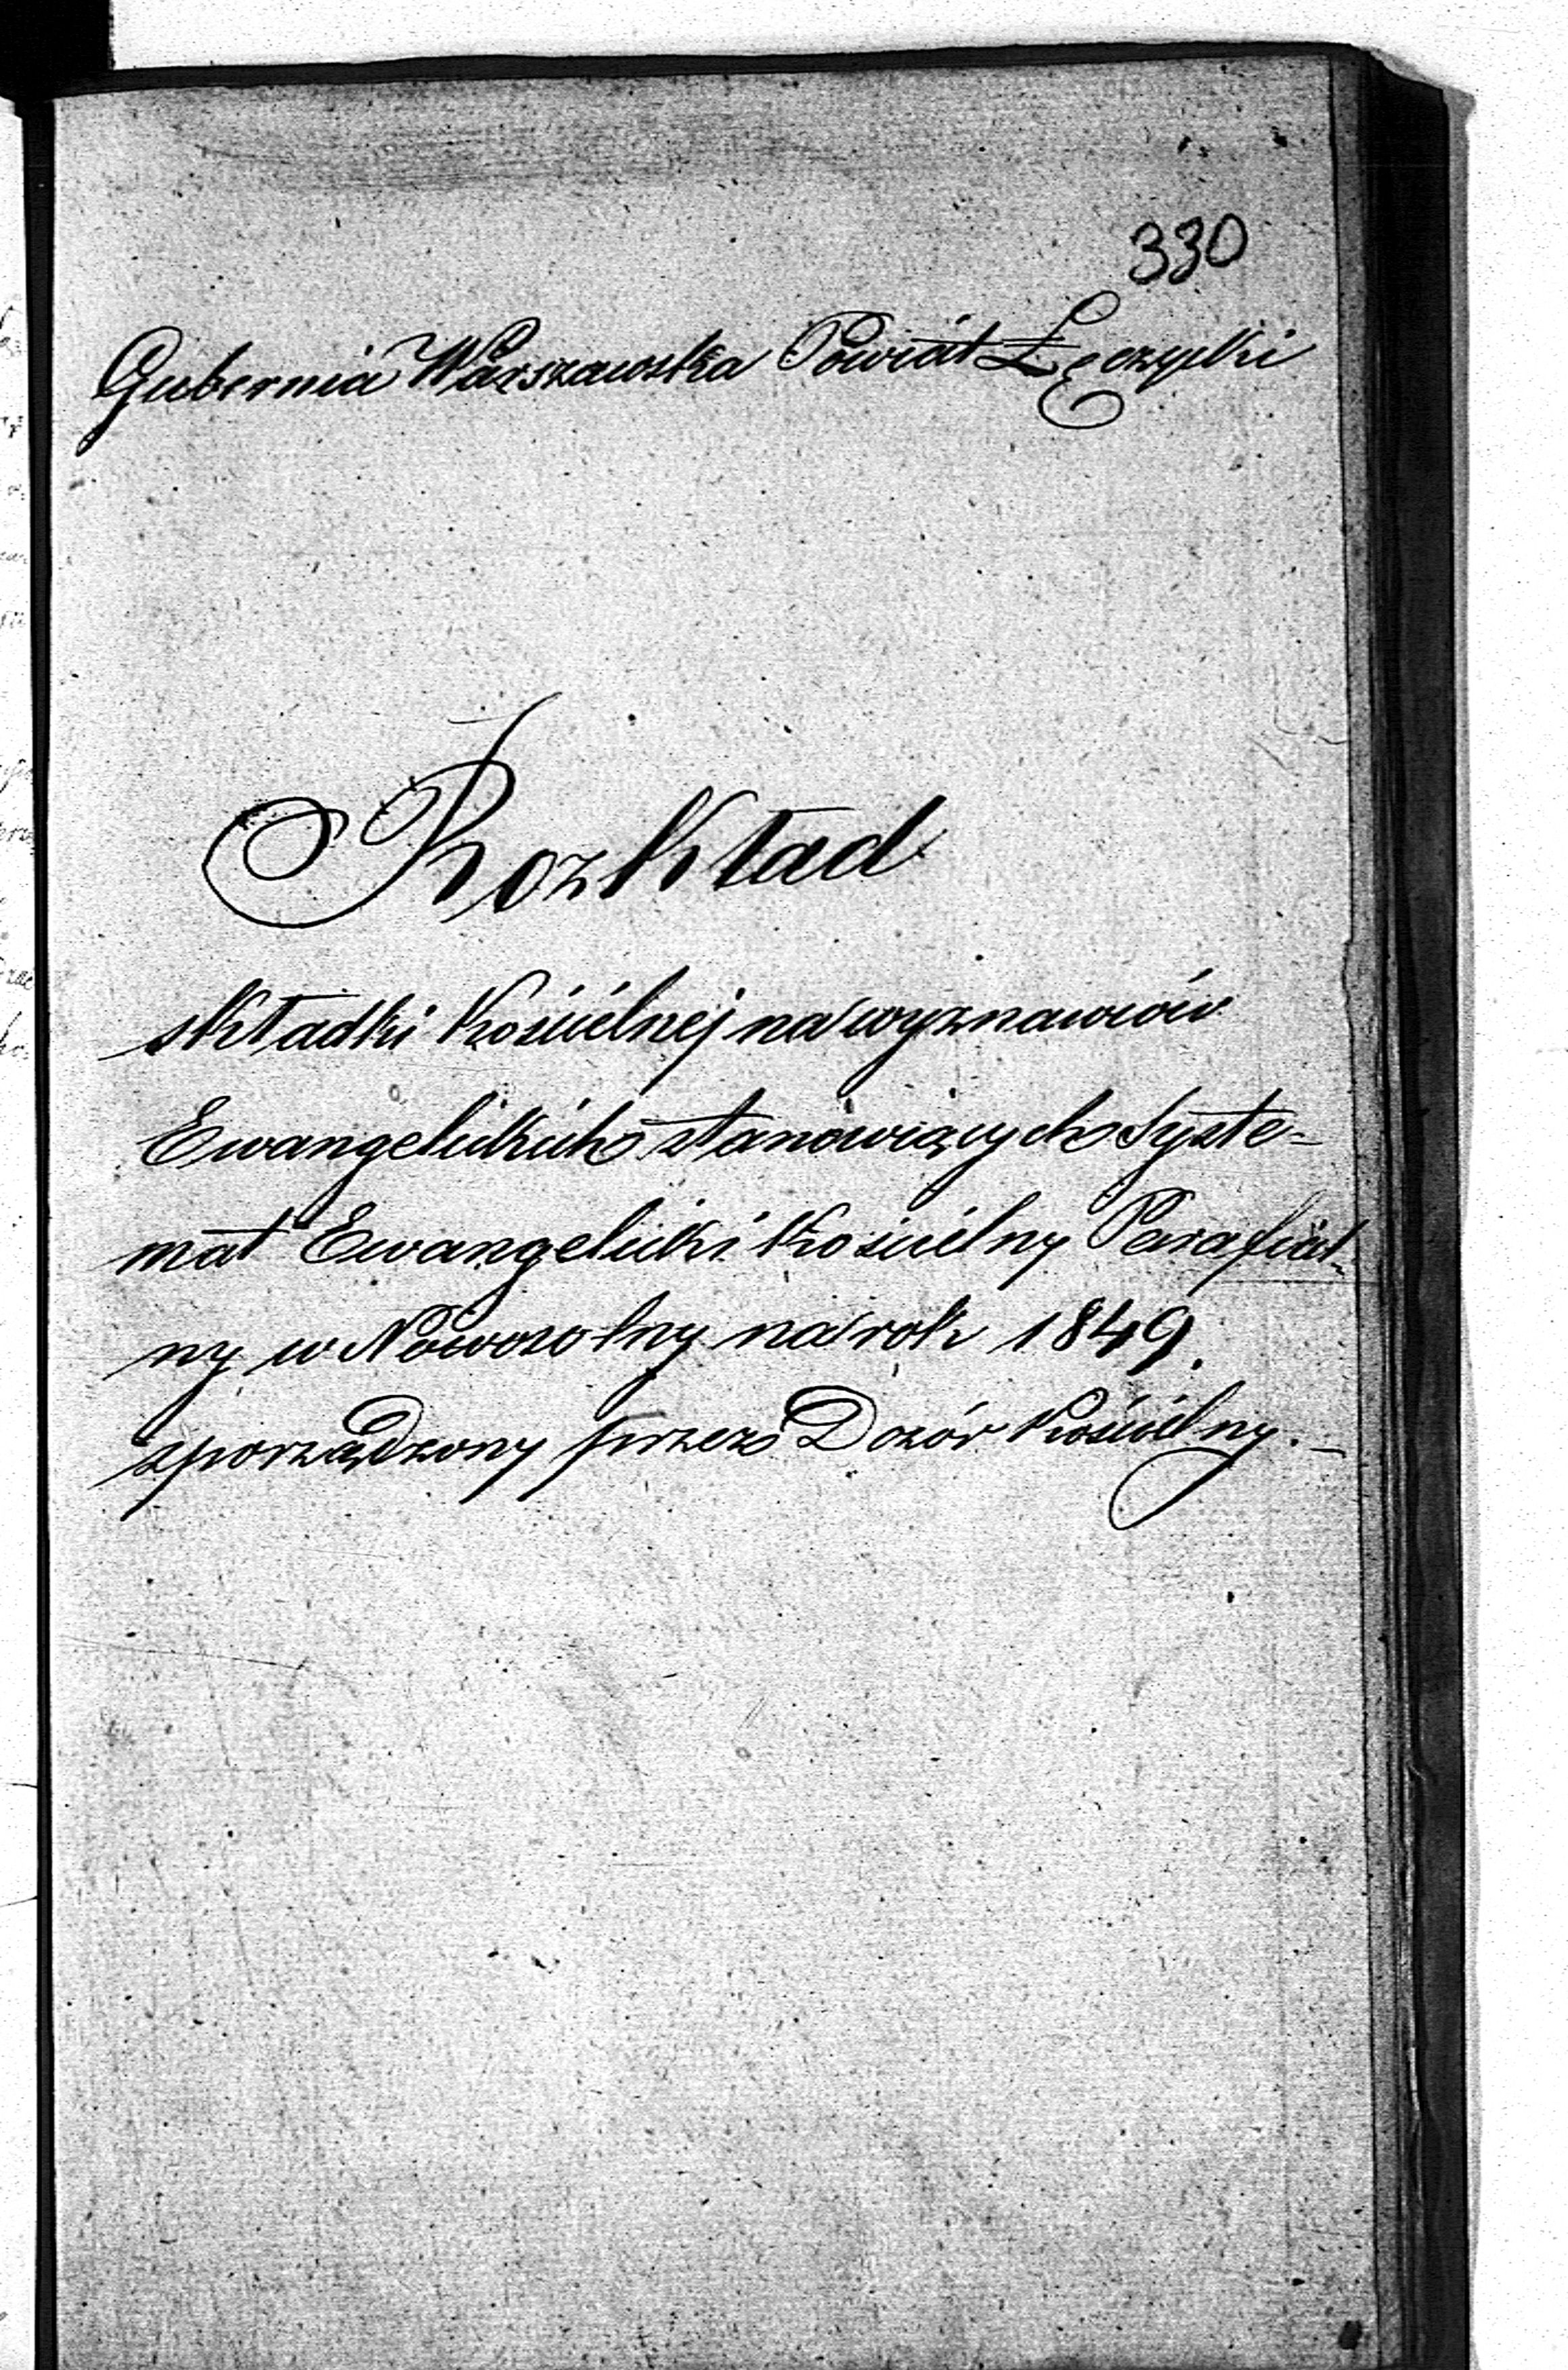 330
Gubernia Warszawska Powiat Łęczycki
Rozkład
składki Kościelnej na wyznawców
Ewangelickich stanowiących Syste=
mat Ewangelicki Kościelny Parafial=
ny w Nowosolny na rok 1849.
sporządzony przez Dozór Kościelny. —